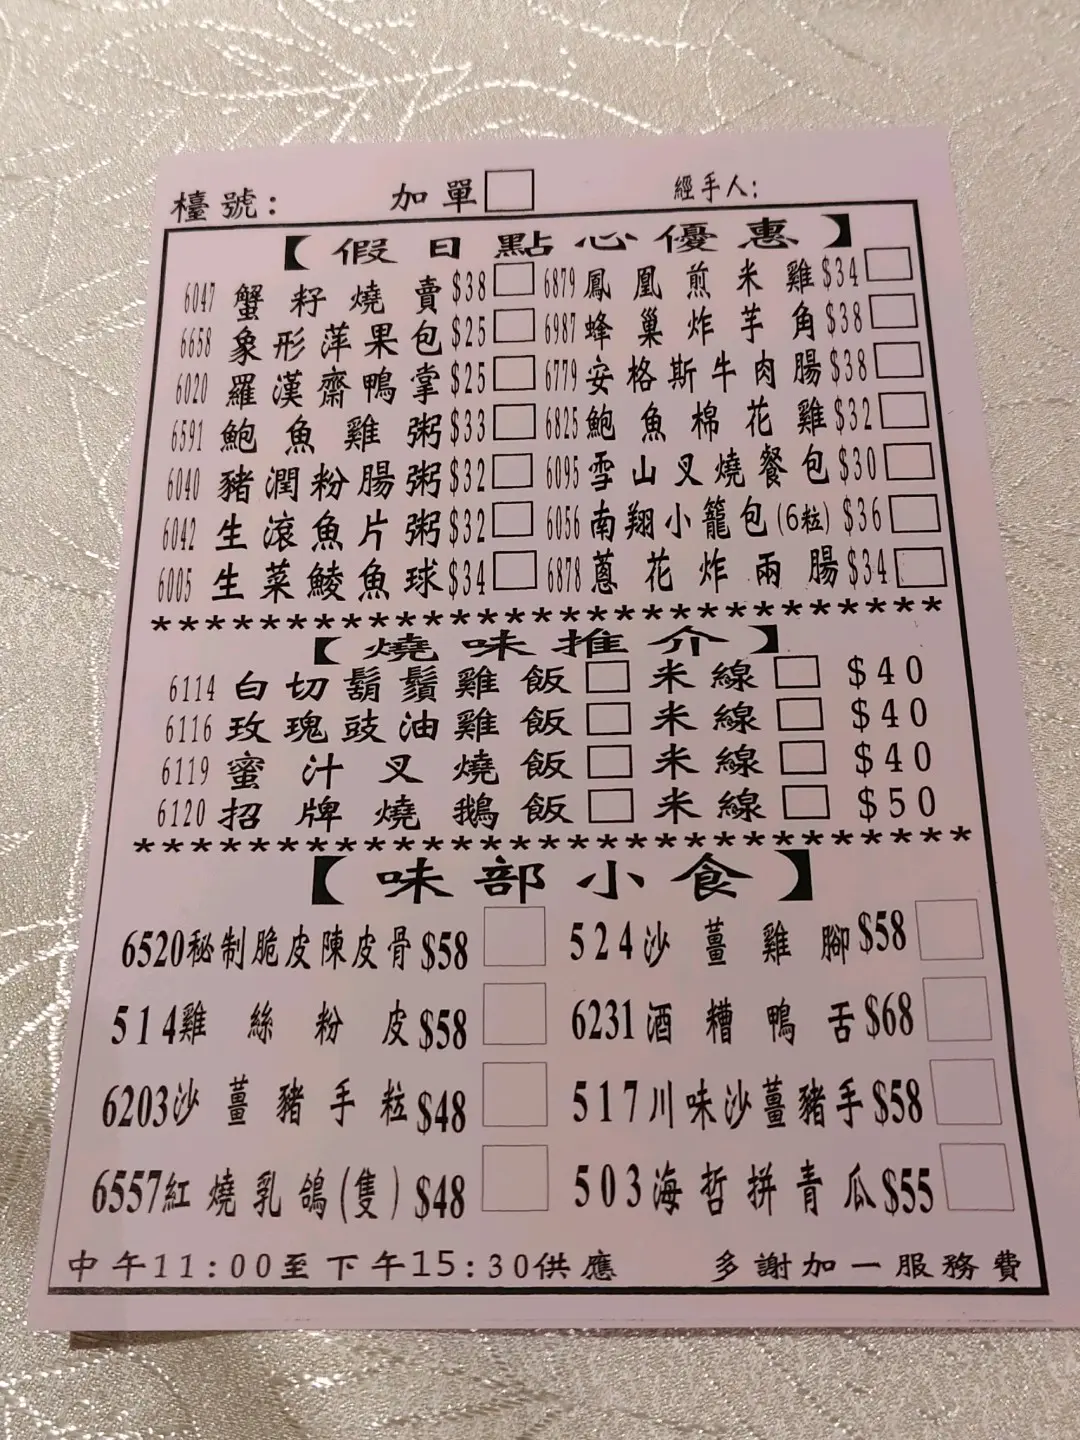 檯號: 加單 經手人:
【假日點心優惠】
6047 蟹籽燒賣 $38 6879 鳳凰煎米雞 $34
6658 象形萍果包 $25 6987 蜂巢炸芋角 $38
6020 羅漢齋鴨掌 $25 6779 安格斯牛肉腸 $38
6591 鮑魚雞粥 $33 6825 鮑魚棉花雞 $32
6040 豬潤粉腸粥 $32 6095 雪山叉燒餐包 $30
6042 生滾魚片粥 $32 6056 南翔小籠包(6粒) $36
6005 生菜鯪魚球 $34 6878 蔥花炸兩腸 $34
******************************
【燒味推介】
6114 白切鬍鬚雞飯 米線 $40
6116 玫瑰豉油雞飯 米線 $40
6119 蜜汁叉燒飯 米線 $40
6120 招牌燒鵝飯 米線 $50
*****************************
【味部小食】
6520秘制脆皮陳皮骨 $58 524沙薑雞腳 $58
514雞絲粉皮 $58 6231酒糟鴨舌 $68
6203沙薑豬手粒 $48 517川味沙薑豬手 $58
6557紅燒乳鴿(隻) $48 503海哲拼青瓜 $55
中午11:00至下午15:30供應 多謝加一服務費